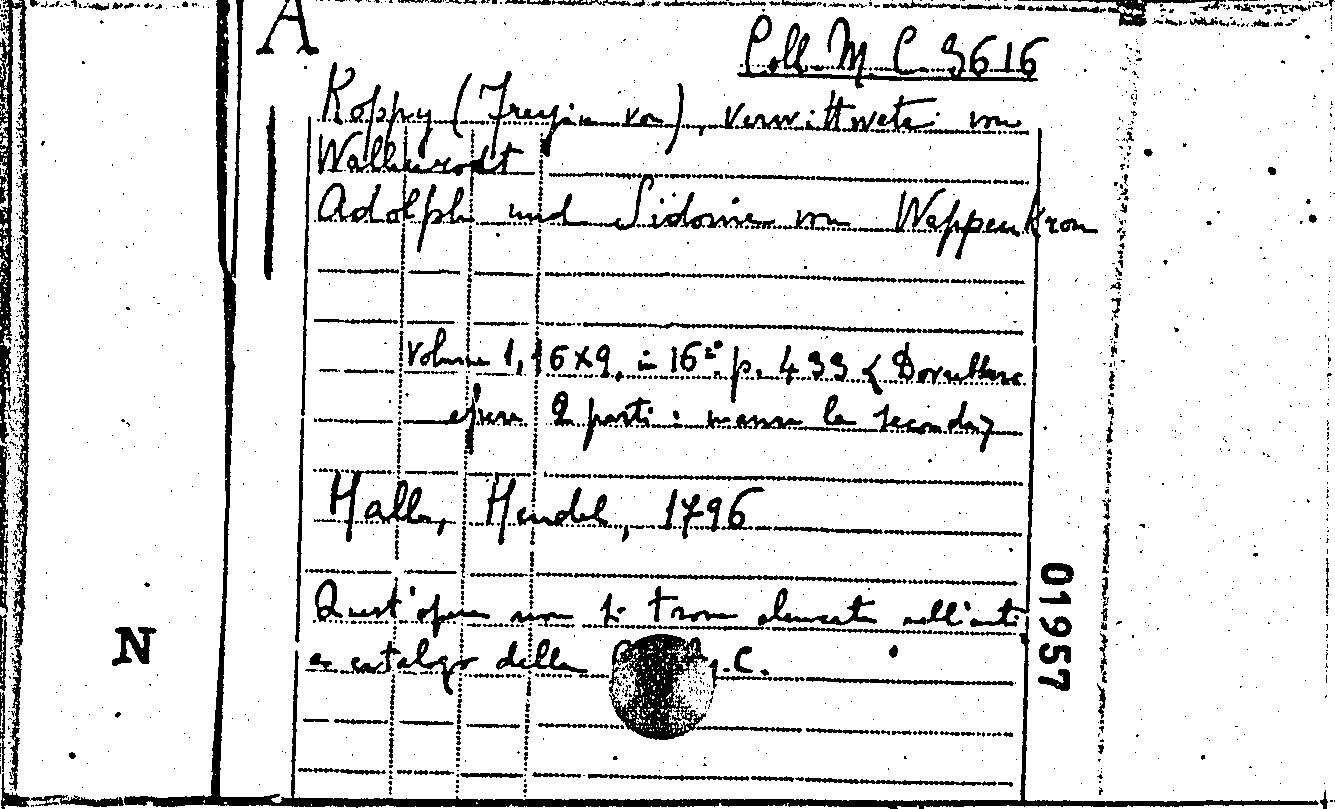 A
Coll. M. C. 3616
Koppy (Freyin von), verwittwete von
Wallenrodt
Adolph und Sidonie von Wappenkron
volume 1, 16x9, in 16º. p. 433 < Dovrebbe
opera 2 parti: manca la seconda>
Halle, Hendel, 1796
Quest'opera non si trova elencata nell'anti
co catalogo della C.
N
01957